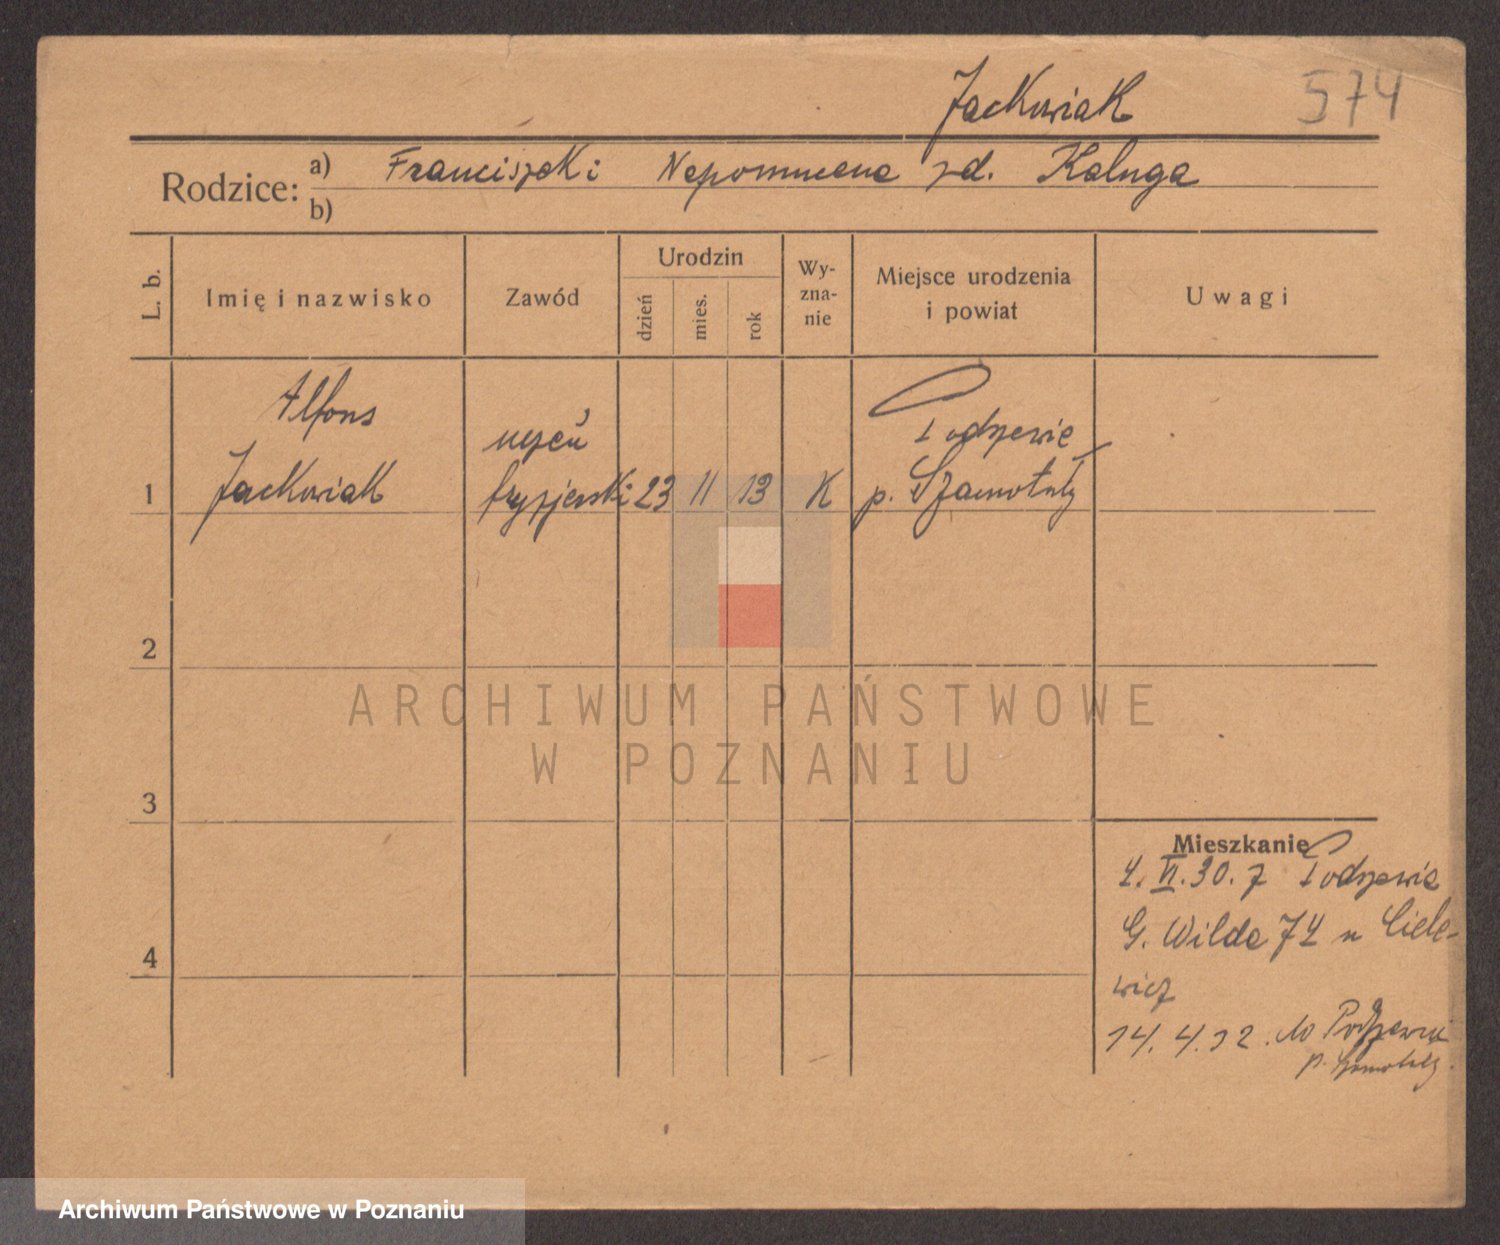 574
Jackowiak
Rodzice: a) Franciszek i Nepomucena zd. Kaluga
b)
L. b.
Imię i nazwisko
Zawód
Urodzin
dzień
mies.
rok
Wy-
zna-
nie
Miejsce urodzenia
i powiat
Uwagi
Alfons
uczeń
Podrzewie
1 Jackowiak fryzjerski 23 11 13 K p. Szamotuły
2
ARCHIWUM PAŃSTWOWE
W POZNANIU
3
Mieszkanie
4. VI. 30. z Podrzewie
G. Wilda 74 u Ciele-
4
wicz
14. 4. 32. do Podrzewia
p. Szamotuły.
Archiwum Państwowe w Poznaniu